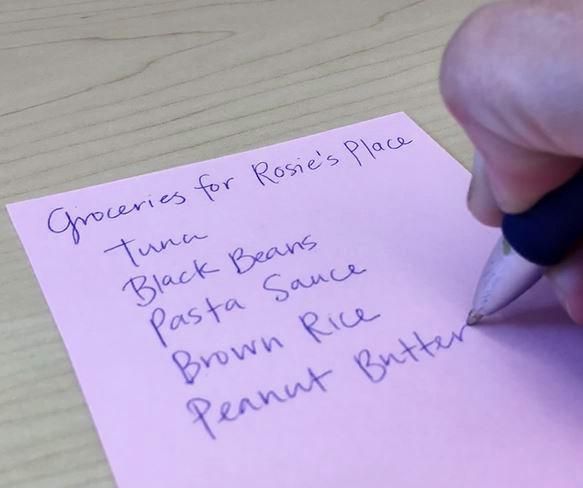 Groceries for Rosie's Place
Tuna
Black Beans
Pasta Sauce
Brown Rice
Peanut Butter